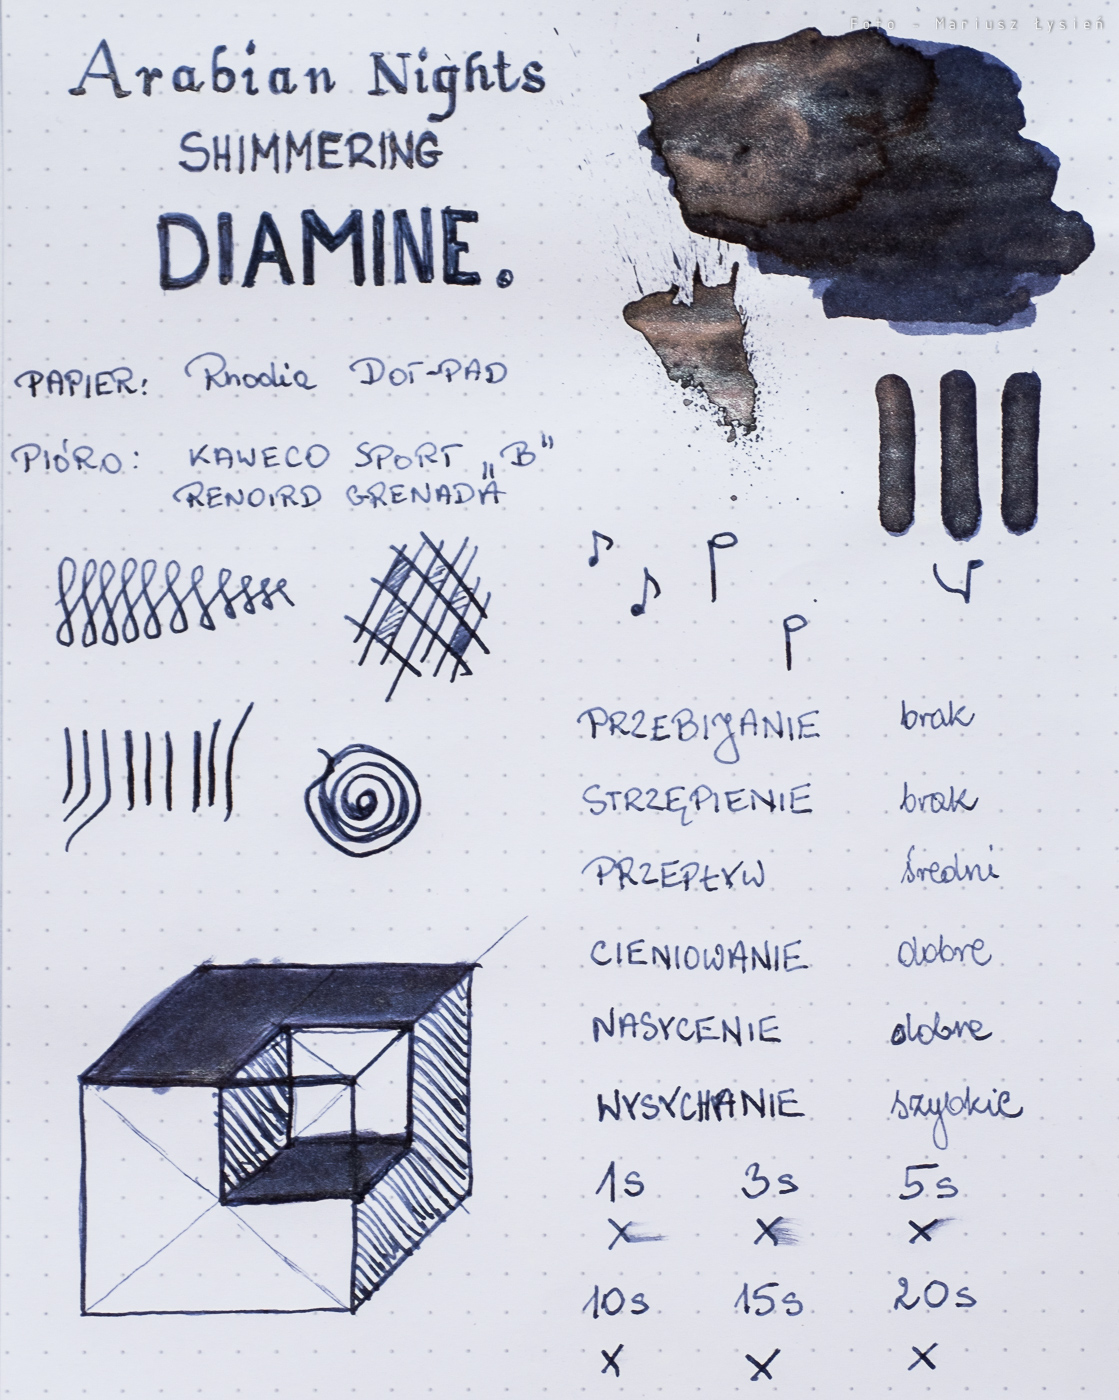 Foto - Mariusz Łysień
Arabian Nights
SHIMMERING
DIAMINE.
PAPIER: Rhodia DOT-PAD
PIÓRO: KAWECO SPORT „B"
RENOIRD GRENADA
PRZEBIJANIE brak
STRZĘPIENIE brak
PRZEPŁYW średni
CIENIOWANIE dobre
NASYCENIE dobre
WYSYCHANIE szybkie
1s 3s 5s
x x x
10s 15s 20s
x x x